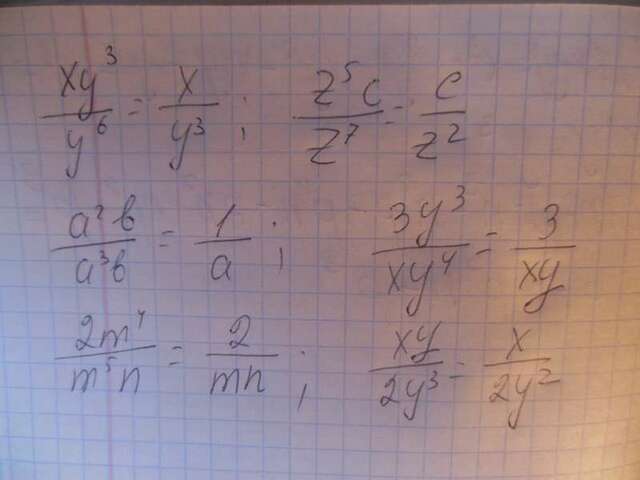 xy³/y⁶ = x/y³ ; z⁵c/z⁷ = c/z²
a²b/a³b = 1/a ; 3y³/xy⁴ = 3/xy
2m⁴/m⁵n = 2/mn ; xy/2y³ = x/2y²